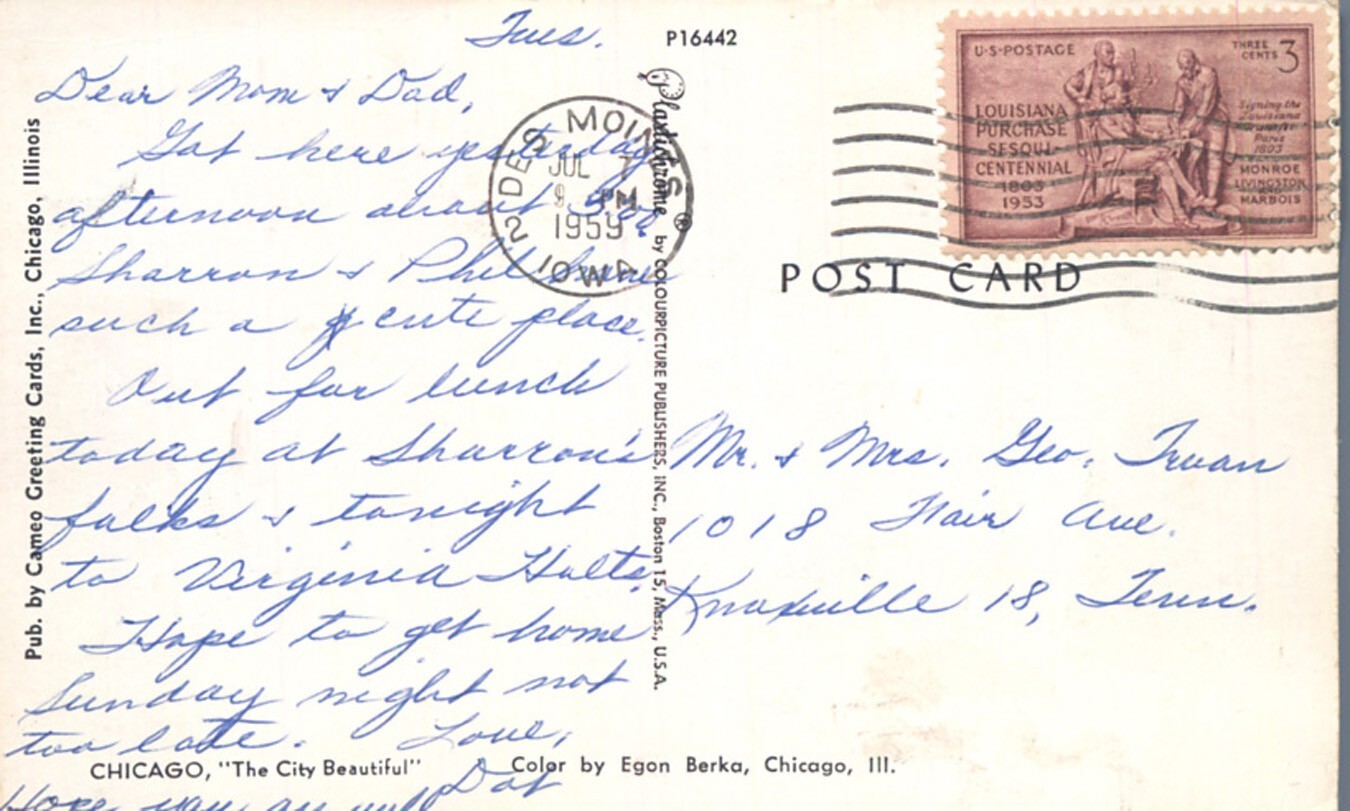 Tues.
P16442
Dear Mom & Dad,
Got here yesterday
afternoon about
Sharron & Phil have
such a cute place.
Out for lunch
today at Sharron's
folks & tonight
to Virginia Holts.
Hope to get home
Sunday night not
too late. Love,
Dot
Hope you are well
Pub. by Cameo Greeting Cards, Inc., Chicago, Illinois
CHICAGO, "The City Beautiful"
Color by Egon Berka, Chicago, Ill.
Plastichrome ® by COLOURPICTURE PUBLISHERS, INC., Boston 15, Mass., U.S.A.
DES MOINES
JUL 7
9 PM
1959
2 IOWA
U·S·POSTAGE
THREE CENTS 3
LOUISIANA
PURCHASE
SESQUI-
CENTENNIAL
1803
1953
Signing the
Louisiana
Transfer
Paris
1803
MONROE
LIVINGSTON
AND
MARBOIS
POST CARD
Mr. & Mrs. Geo.
1018 Ave.
Knoxville 18, Tenn.